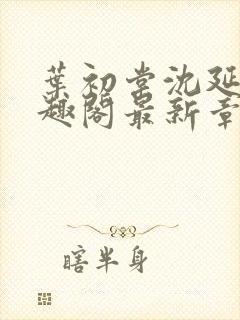 葉初棠沈延
趣閣最新章
瞎半身